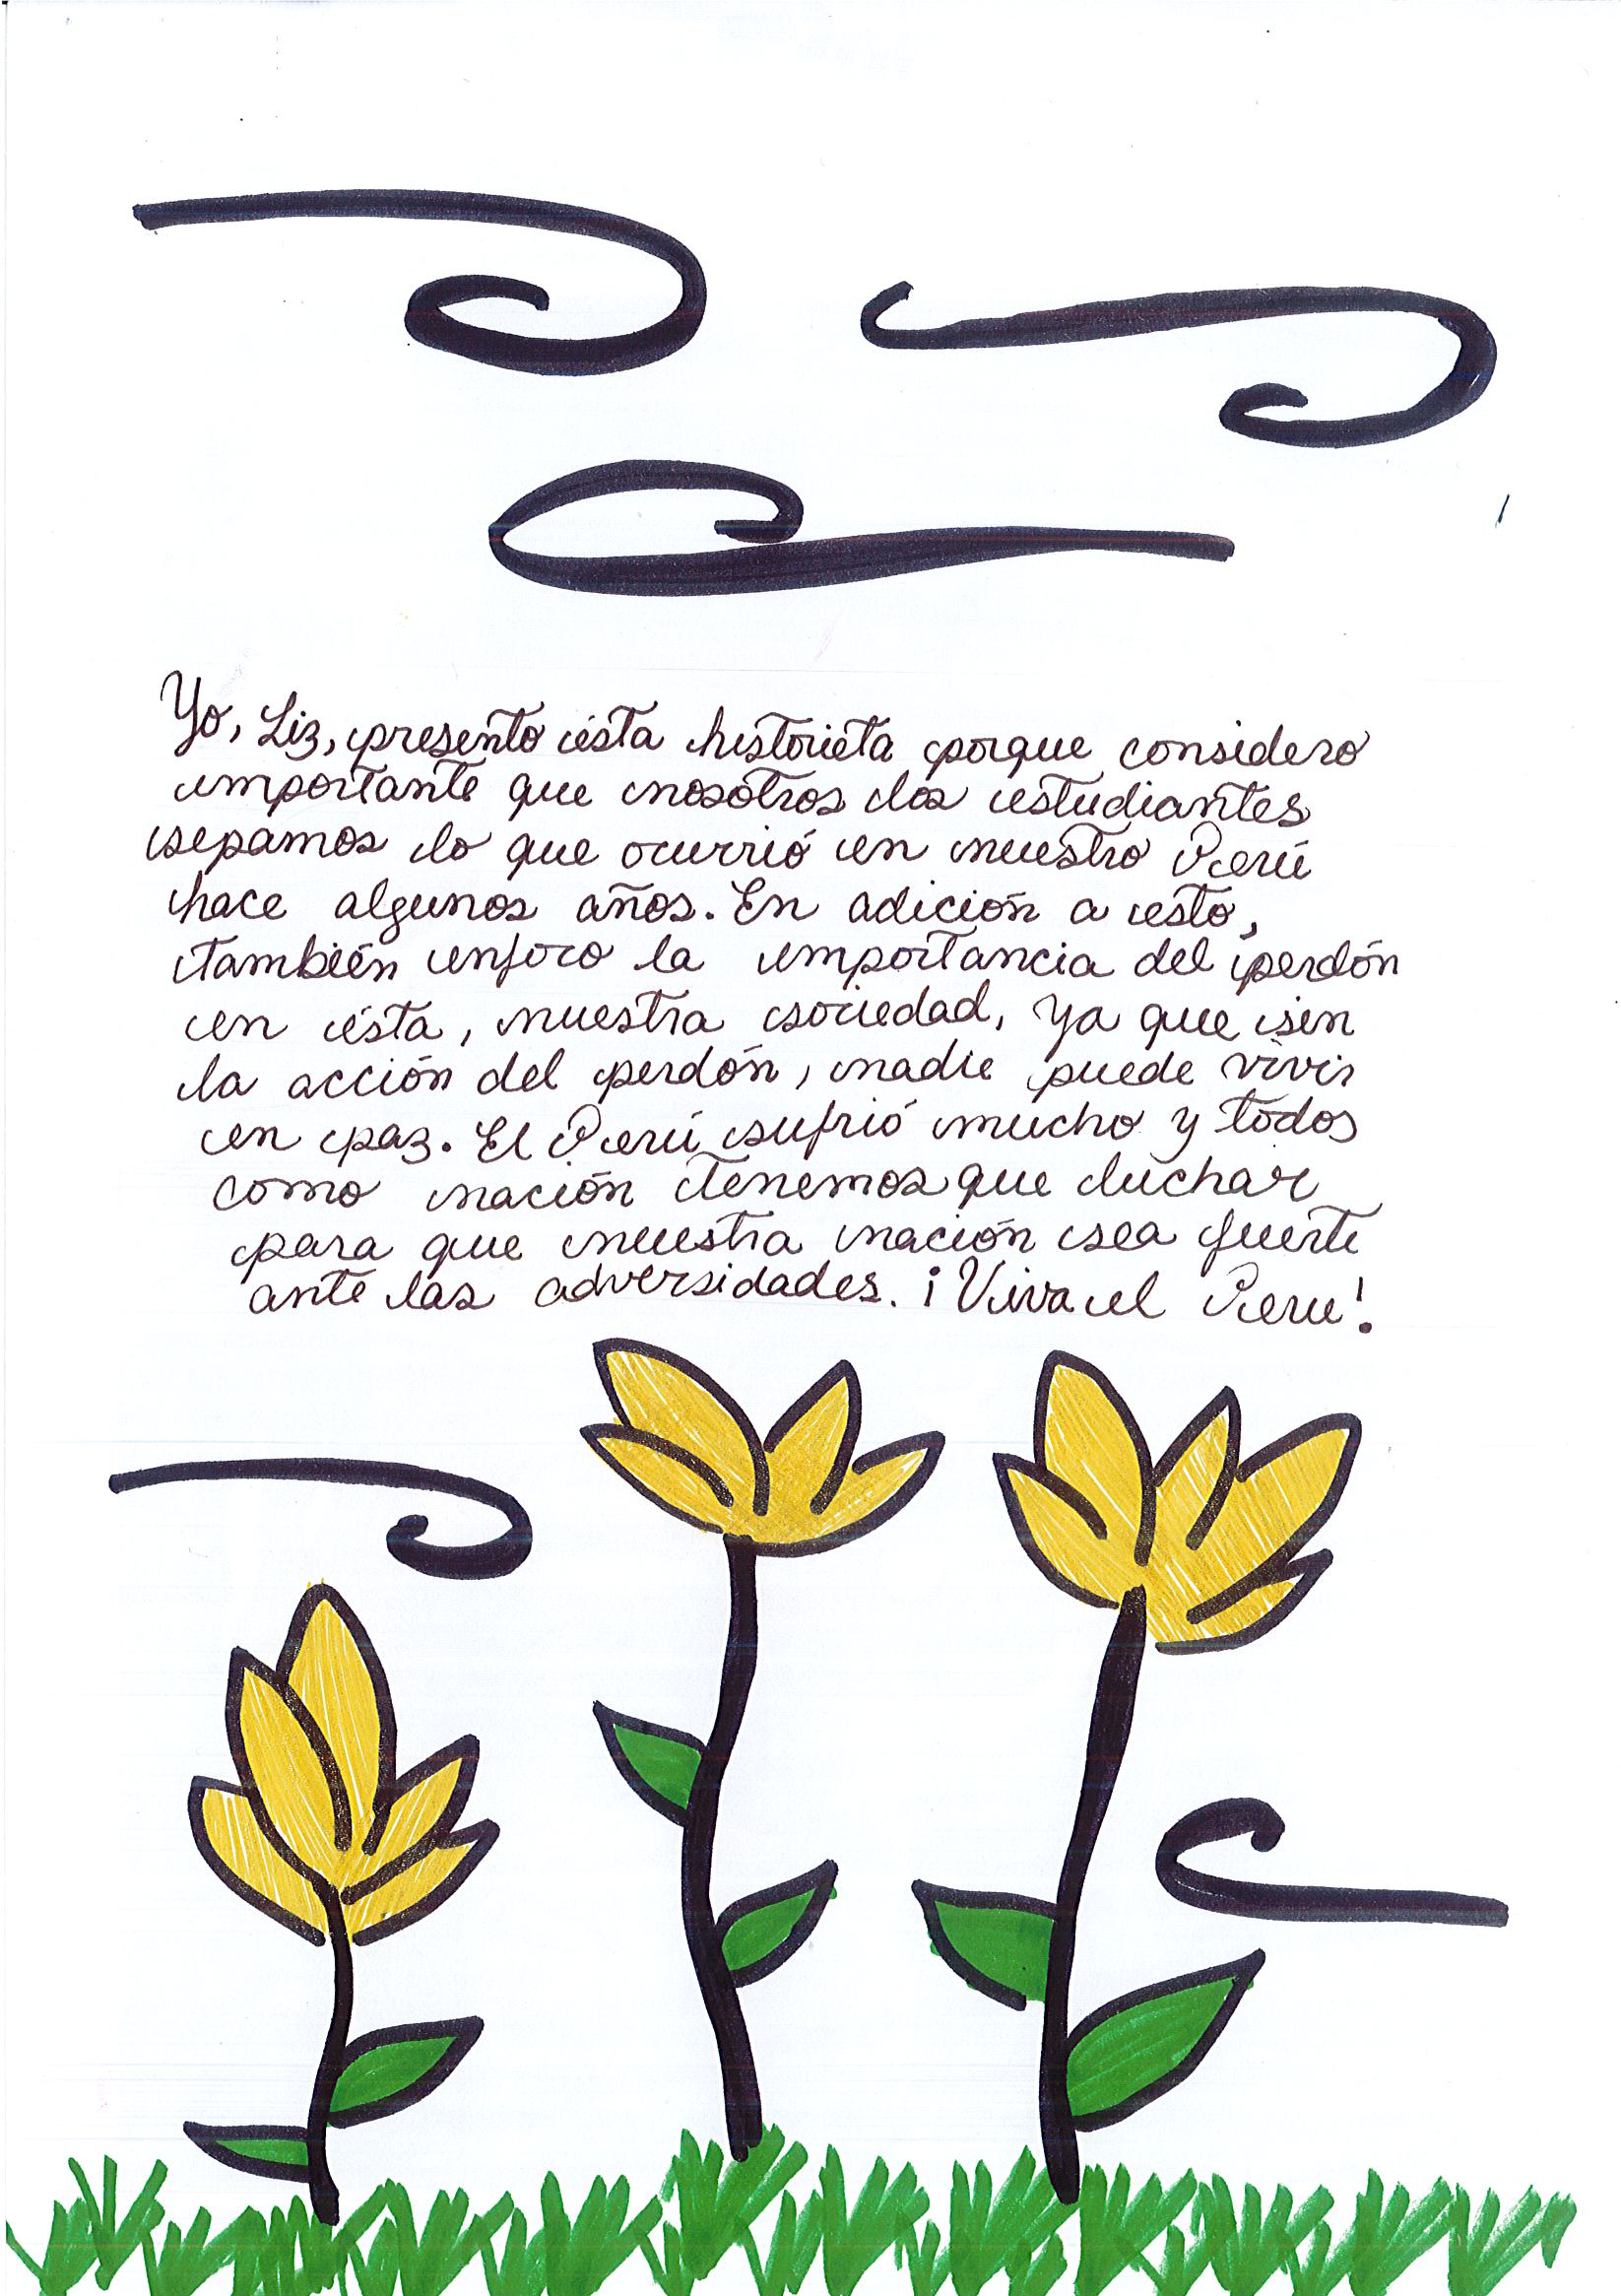 Yo, Liz, presento ésta historieta porque considero
importante que nosotros los estudiantes
sepamos lo que ocurrió en nuestro Perú
hace algunos años. En adición a esto,
también enfoco la importancia del perdón
en ésta, nuestra sociedad, ya que sin
la acción del perdón, nadie puede vivir
en paz. El Perú sufrió mucho y todos
como nación tenemos que luchar
para que nuestra nación sea fuerte
ante las adversidades. ¡Viva el Peru!